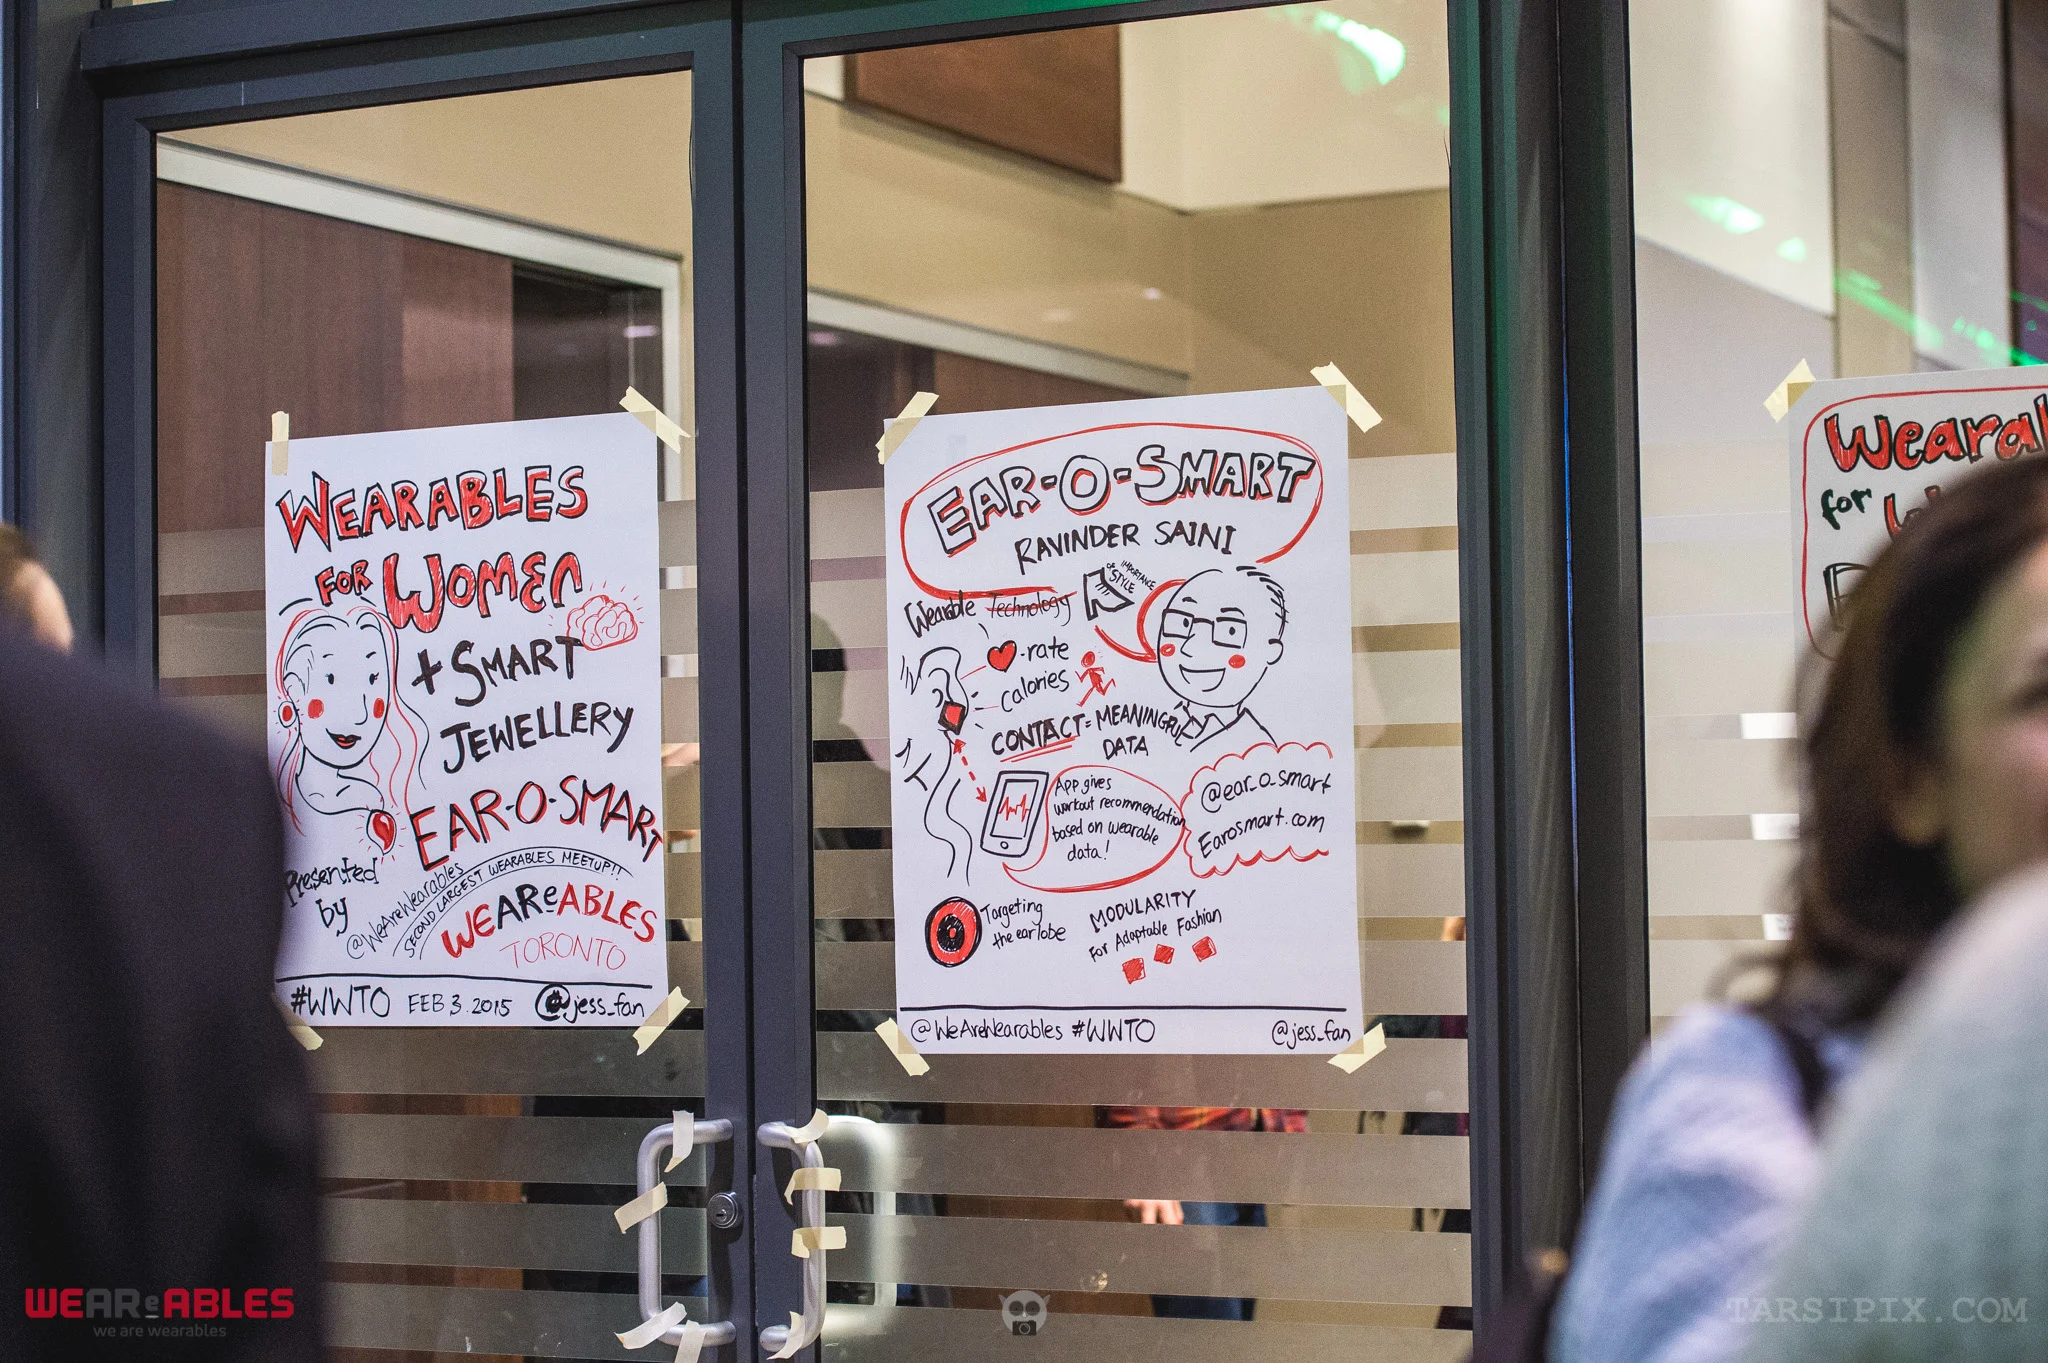 WEARABLES
FOR WOMEN
+ SMART
JEWELLERY
EAR-O-SMART
Presented
by
@WeAreWearables
SECOND LARGEST WEARABLES MEETUP!!
WEAReABLES
TORONTO
#WWTO FEB 3. 2015 @jess_fan
EAR-O-SMART
RAVINDER SAINI
IMPORTANCE
OF STYLE
Wearable Technology
-rate
calories
CONTACT = MEANINGFUL
DATA
App gives
workout recommendation
based on wearable
data!
@ear_o_smart
Earosmart.com
Targeting
the earlobe
MODULARITY
For Adaptable Fashion
@WeAreWearables #WWTO @jess_fan
Weara
for
WEAReABLES
we are wearables
TARSIPIX.COM